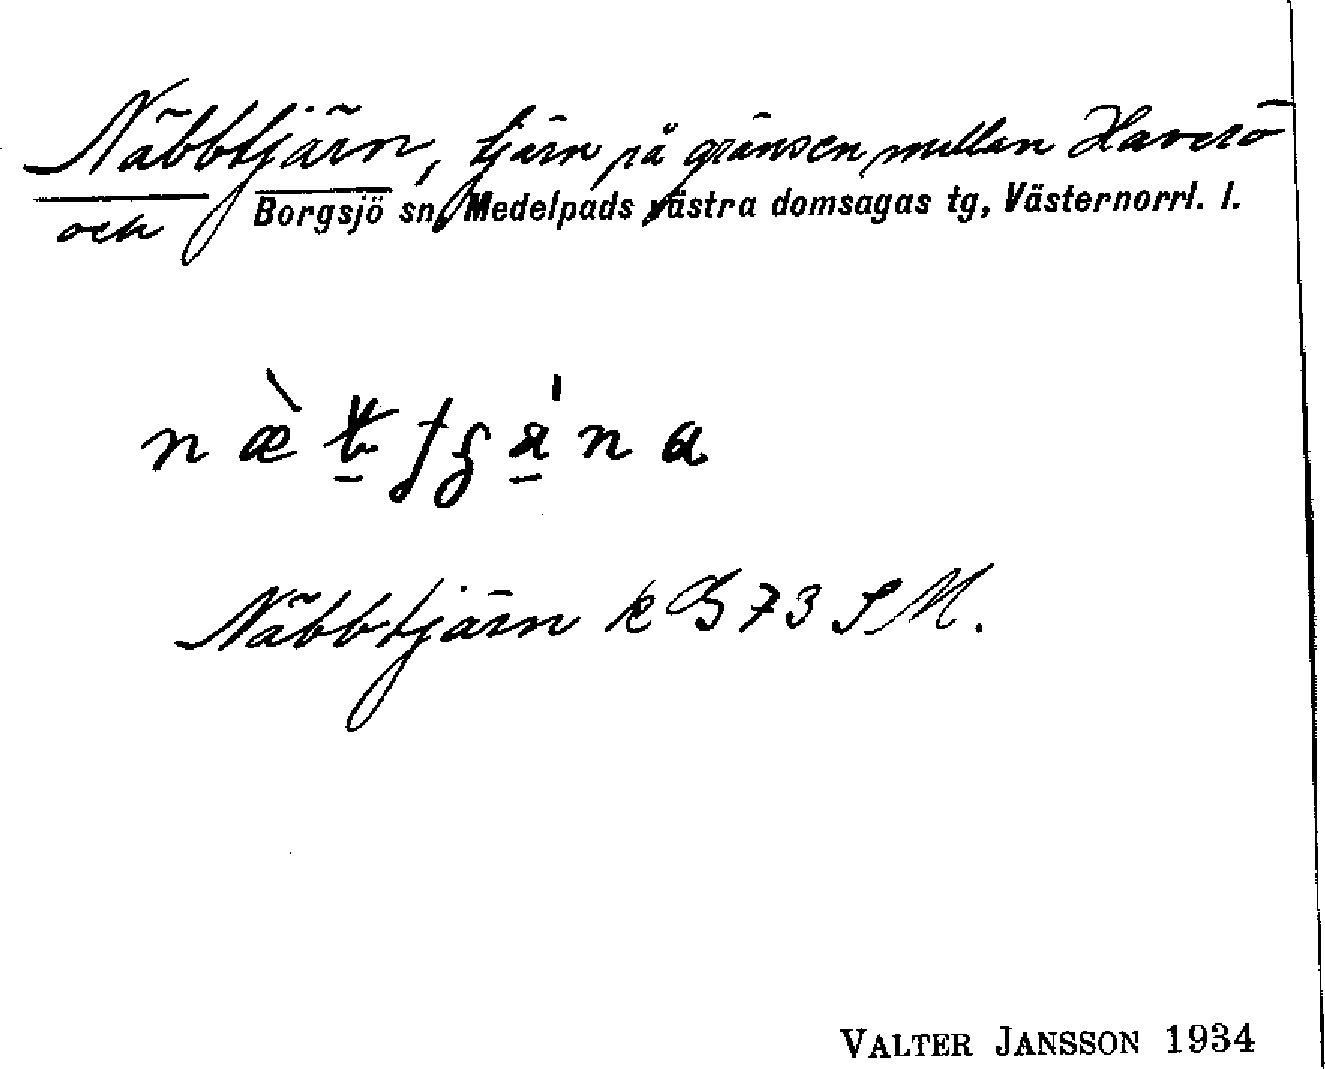 Näbbtjärn, tjärn på gränsen mellan Haverö
och Borgsjö sn, Medelpads västra domsagas tg, Västernorrl. l.
Näbbtjärn k B 73 SM.
VALTER JANSSON 1934